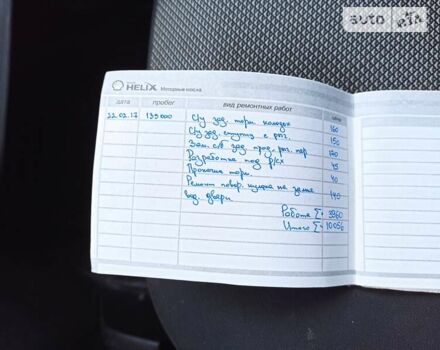 auto RIA
HELIX Моторные масла
дата пробег вид ремонтных работ цена
22.02.17 135000 С/у зад. торм. колодок 160
С/у зад. ступиц с рег. 150
Зам. с/в зад. прод. рыч. пар. 120
Разработка под р/сх 45
Прокачка торм. 40
Ремонт повор. кулака на замке 140
зад. двери.
Работа Σ= 3960
Итого Σ= 10056